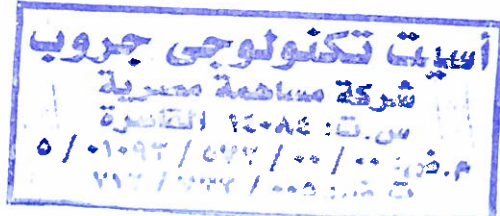 أسيت تكنولوجى جروب
شركة مساهمة مصرية
س.ت: ١٤٠٨٤ القاهرة
م.ض: ٠٠ / ٠٠ / ٥٧٢ / ٠١٠٩٣ / ٥